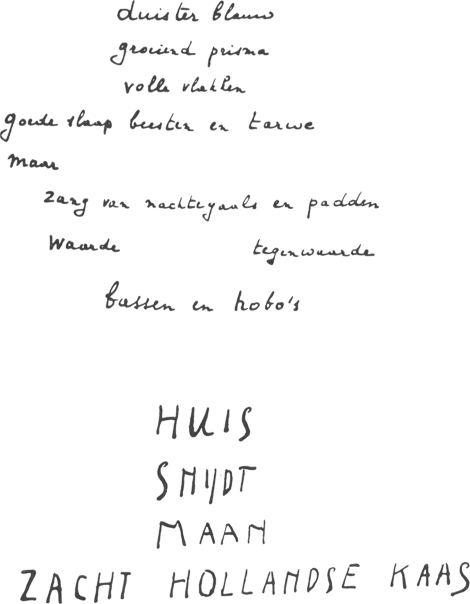 duister blauw
groeiend prisma
volle vlakken
goede slaap beesten en tarwe
maar
zang van nachtegaals en padden
waarde tegenwaarde
bassen en hobo's
HUIS
SNIJDT
MAAN
ZACHT HOLLANDSE KAAS